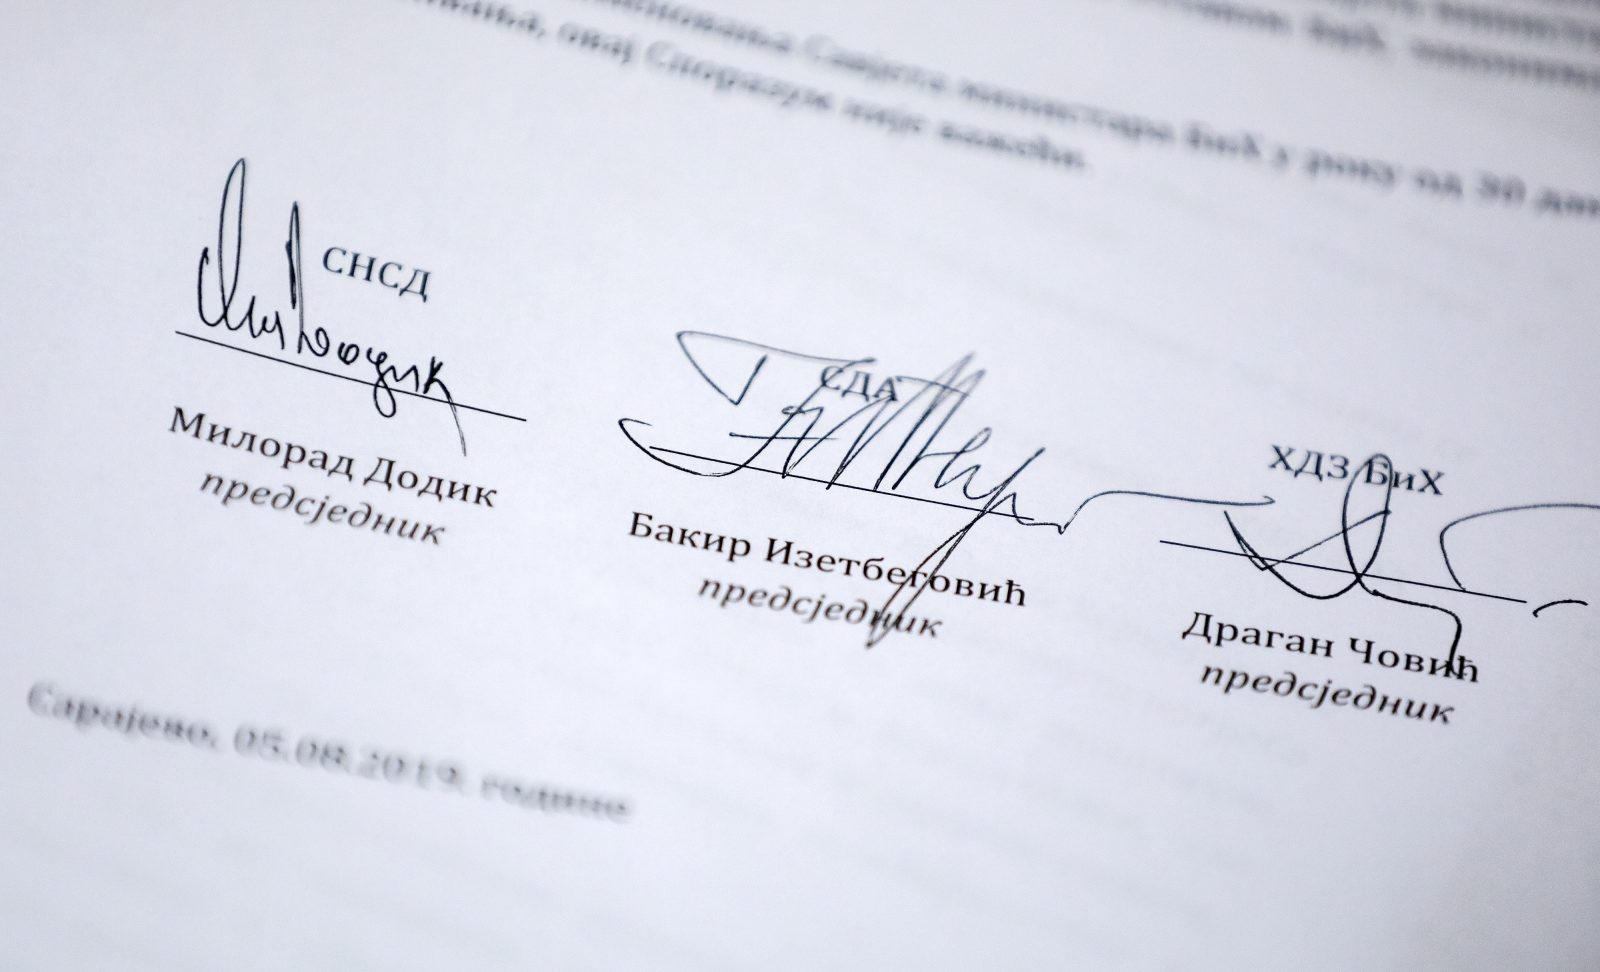 Савјета министара БиХ у року од 30 дана
овај Споразум није важећи.
СНСД
Милорад Додик
предсједник
СДА
Бакир Изетбеговић
предсједник
ХДЗ БиХ
Драган Човић
предсједник
Сарајево, 05.08.2019. године